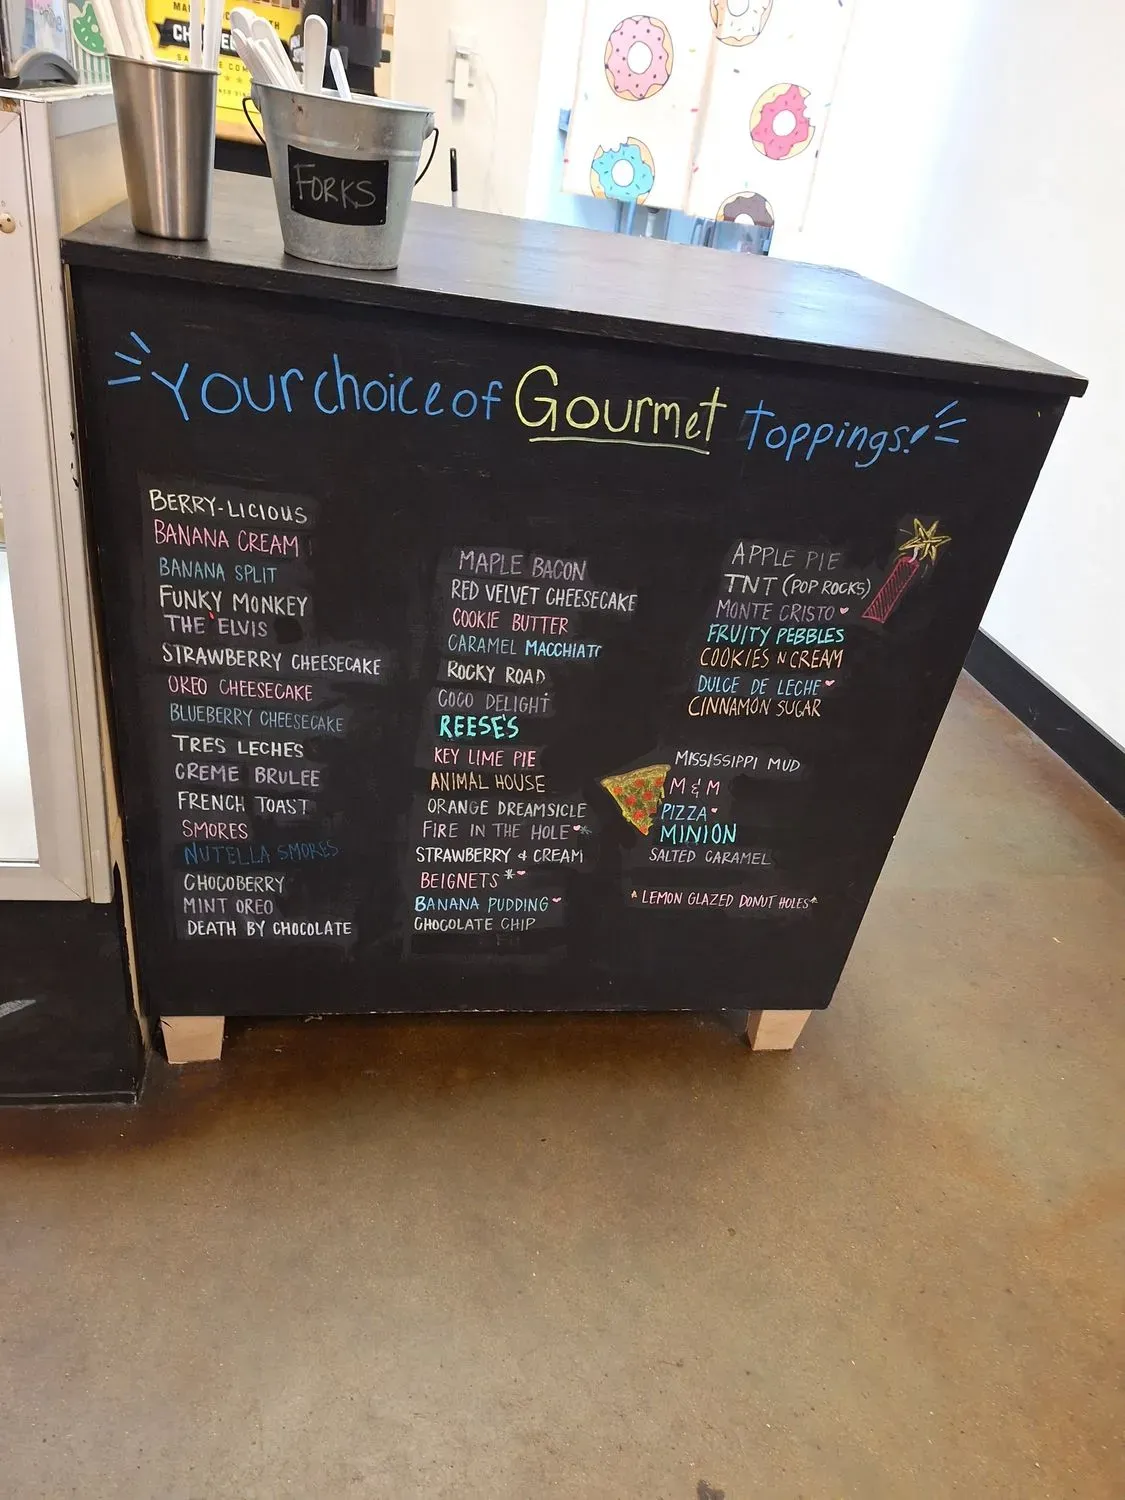 FORKS
Your choice of Gourmet Toppings!
BERRY-LICIOUS
BANANA CREAM
BANANA SPLIT
FUNKY MONKEY
THE ELVIS
STRAWBERRY CHEESECAKE
OREO CHEESECAKE
BLUEBERRY CHEESECAKE
TRES LECHES
CREME BRULEE
FRENCH TOAST
SMORES
NUTELLA SMORES
CHOCOBERRY
MINT OREO
DEATH BY CHOCOLATE
MAPLE BACON
RED VELVET CHEESECAKE
COOKIE BUTTER
CARAMEL MACCHIATO
ROCKY ROAD
COCO DELIGHT
REESE'S
KEY LIME PIE
ANIMAL HOUSE
ORANGE DREAMSICLE
FIRE IN THE HOLE*
STRAWBERRY & CREAM
BEIGNETS *
BANANA PUDDING
CHOCOLATE CHIP
APPLE PIE
TNT (POP ROCKS)
MONTE CRISTO
FRUITY PEBBLES
COOKIES N CREAM
DULCE DE LECHE
CINNAMON SUGAR
MISSISSIPPI MUD
M & M
PIZZA
MINION
SALTED CARAMEL
* LEMON GLAZED DONUT HOLES*